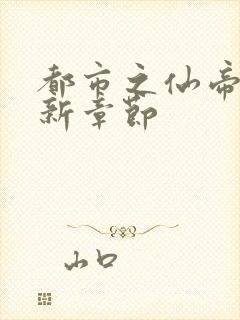 都市之仙帝
新章节
山口